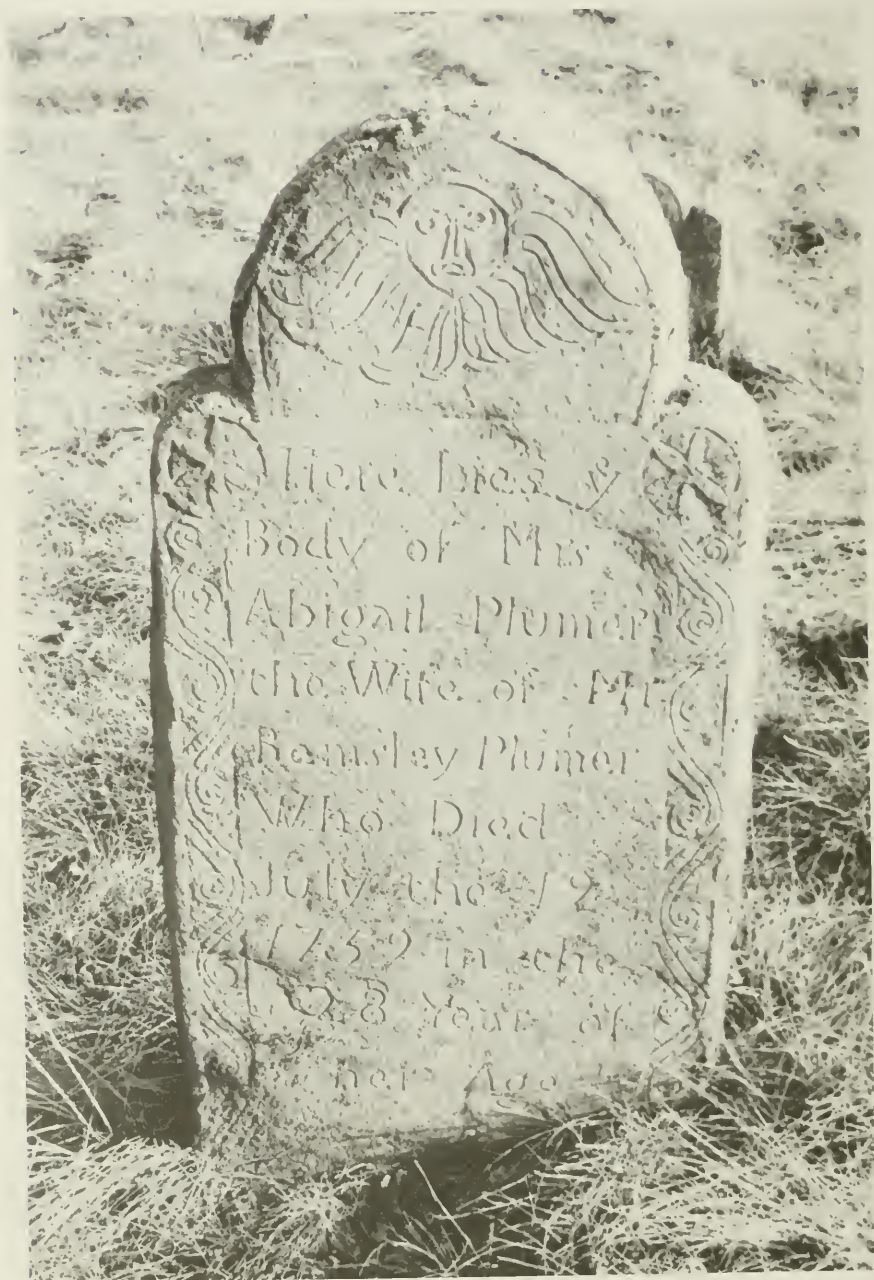 Here Lies ye
Body of Mrs
Abigail Plumer
the Wife of Mr
Bemsley Plumer
Who Died
July the 12
1759 in the
28 Year of
her Age